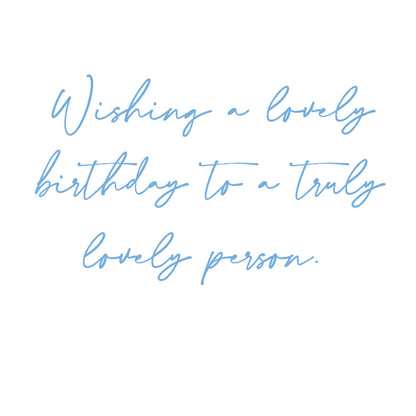 Wishing a lovely
birthday to a truly
lovely person.